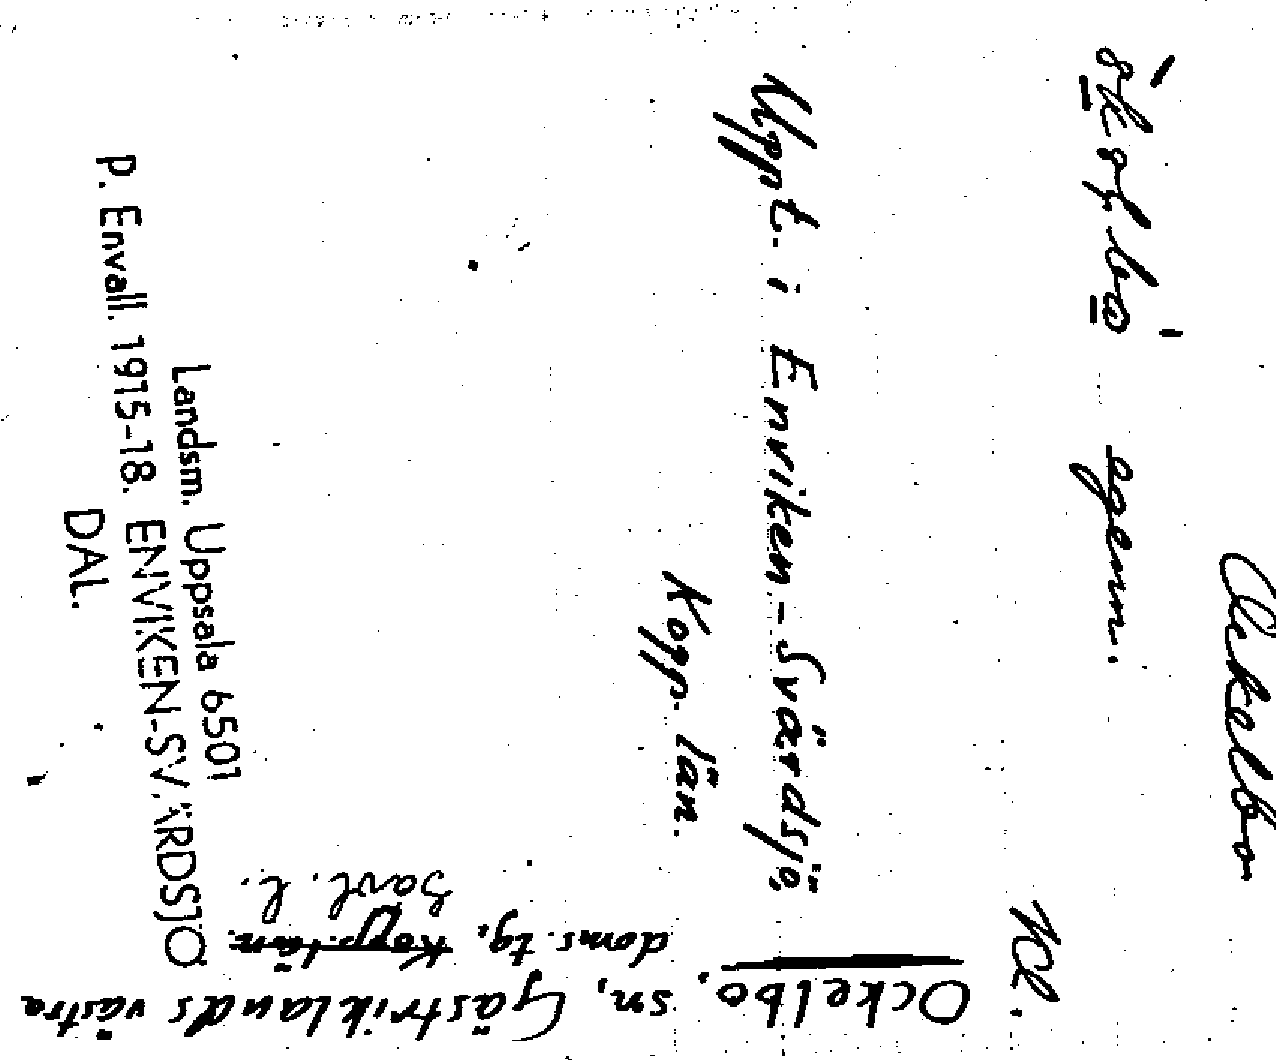 Ockelbo. sn, Gästriklands västra
doms. tg, Kopp. län.
Gävl. l.
Ockelbo
Kl.
egenn.
Uppt. i Enviken-Svärdsjö,
Kopp. län.
Landsm. Uppsala 6501
P. Envall. 1915-18. ENVIKEN-SVÄRDSJÖ
DAL.